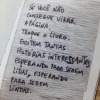 SE VOCÊ NÃO
CONSEGUE VIRAR
A PÁGINA
TROQUE O LIVRO.
EXISTEM TANTAS
HISTÓRIAS INTERESSANTES
ESPERANDO PARA SEREM
LIDAS, ESPERANDO
PARA SEREM
LINDAS.